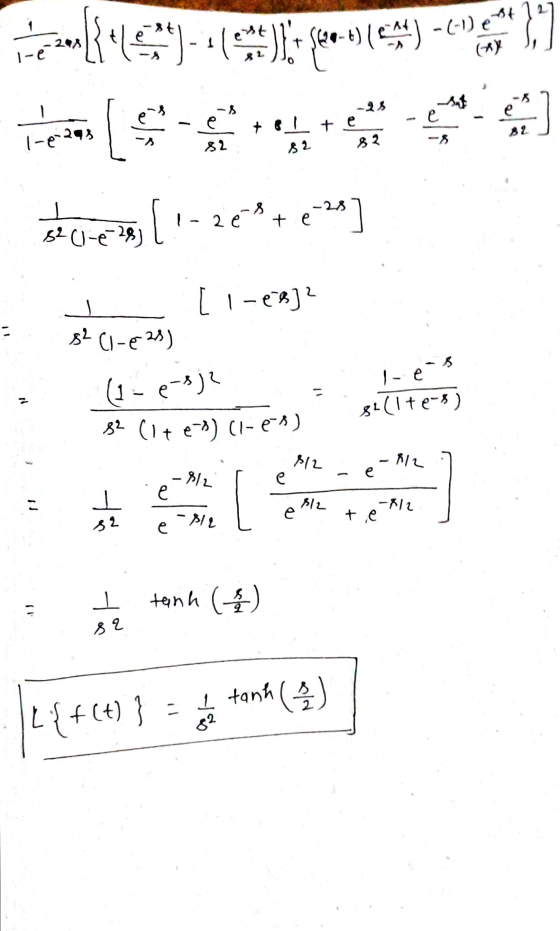 1/(1-e^{-2as}) [{t(e^{-st}/-s) - 1(e^{-st}/s2)}_0^1 + {(2a-t)(e^{-st}/-s) - (-1) e^{-st}/(-s)^2}_1^2]
1/(1-e^{-2as}) [e^{-s}/-s - e^{-s}/s2 + 1/s2 + e^{-2s}/s2 - e^{-s}/-s - e^{-s}/s2]
1/(s2(1-e^{-2s})) [1 - 2e^{-s} + e^{-2s}]
= 1/(s2(1-e^{-2s})) [1 - e^{-s}]^2
= (1 - e^{-s})^2/(s2 (1+e^{-s}) (1-e^{-s})) = (1-e^{-s})/(s2(1+e^{-s}))
= 1/s2 e^{-s/2}/e^{-s/2} [(e^{s/2} - e^{-s/2})/(e^{s/2} + e^{-s/2})]
= 1/s2 tanh (s/2)
L{f(t)} = 1/s2 tanh(s/2)